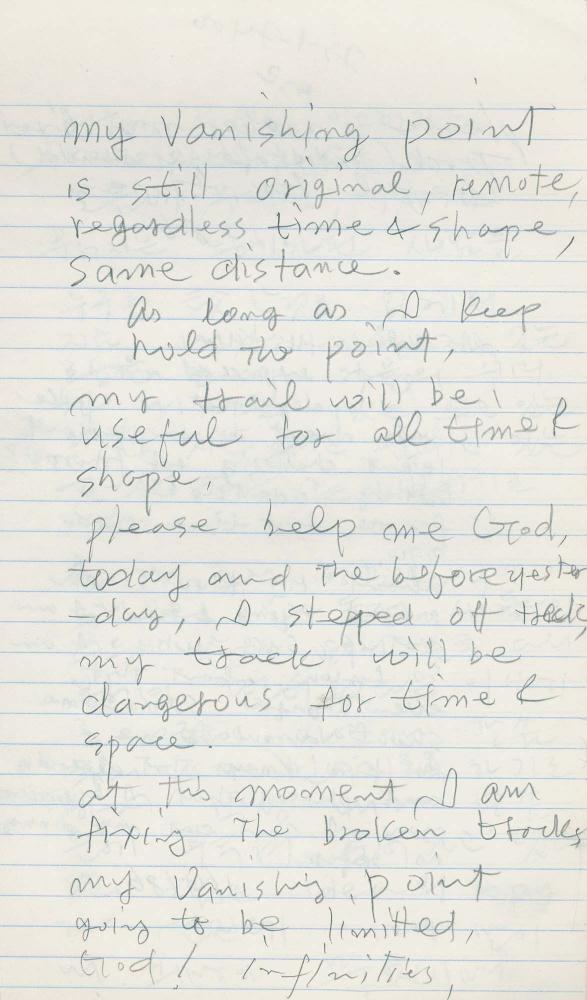 my Vanishing point
is still original, remote,
regardless time & shape,
same distance.
As long as I keep
hold the point,
my trail will be
useful for all time &
shape.
please help me God,
today and the beforeyester
-day, I stepped off track,
my track will be
dangerous for time &
space.
at this moment I am
fixing the broken tracks
my Vanishing point
going to be limitted,
God! infinities,